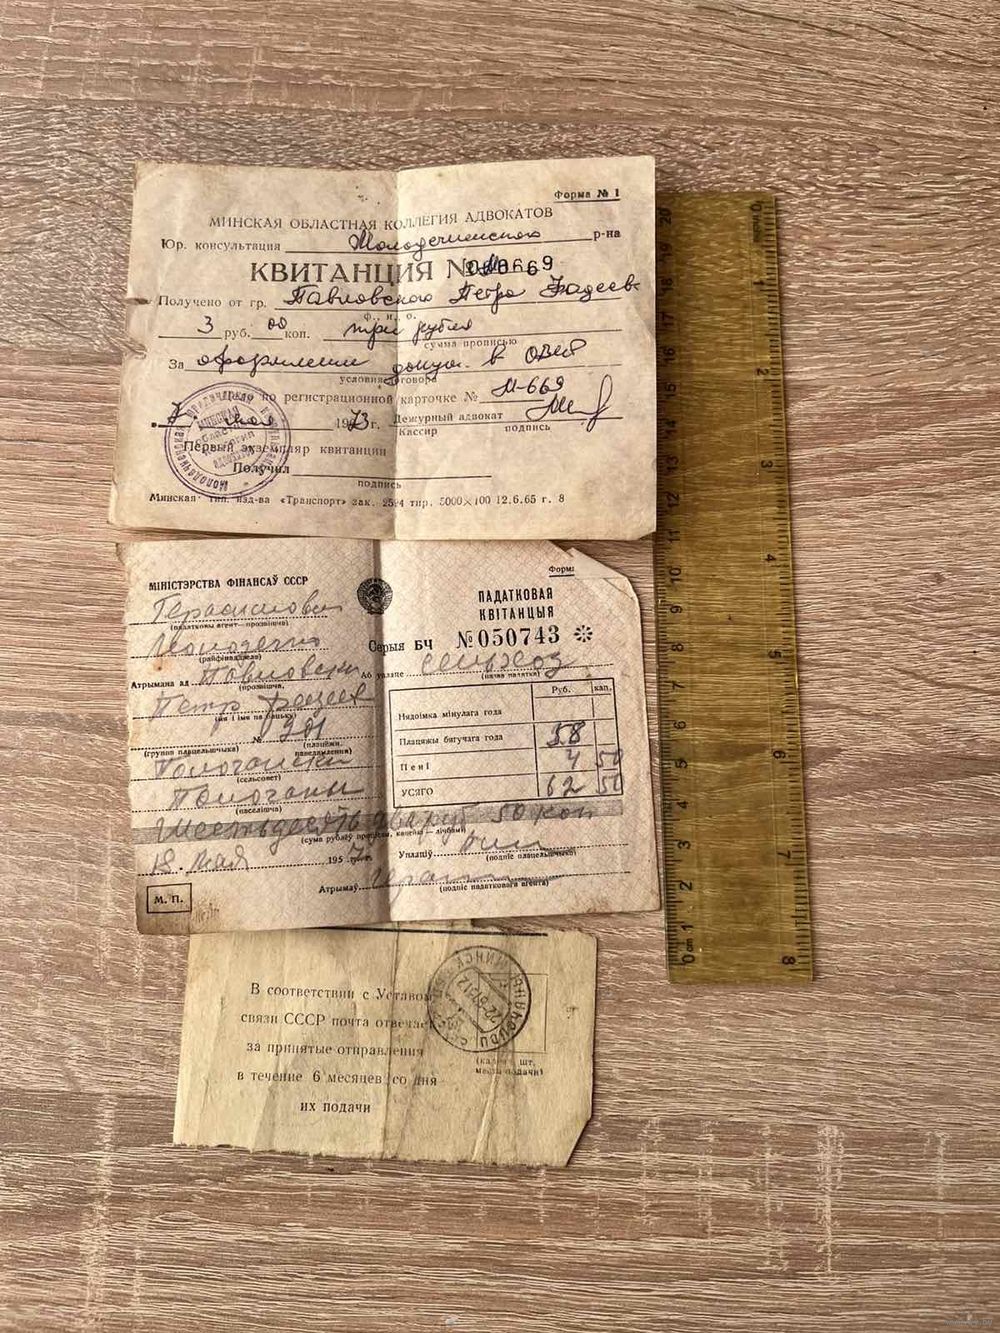 Форма № 1
МИНСКАЯ ОБЛАСТНАЯ КОЛЛЕГИЯ АДВОКАТОВ
Юр. консультация Молодечненского р-на
КВИТАНЦИЯ №
Получено от гр. Павловского Петра Фадеев-
ф., и., о.
3 руб. 00 коп. три рубля
сумма прописью
За оформление докум. в ОВИР
условия договора
по регистрационной карточке № М-669
7 мая 1973 г. Дежурный адвокат
Кассир подпись
Первый экземпляр квитанции
Получил
подпись
Минская тип. изд-ва «Транспорт» зак. 2594 тир. 5000×100 12.6.65 г. 8
МІНІСТЭРСТВА ФІНАНСАЎ СССР
Форма
ПАДАТКОВАЯ
КВІТАНЦЫЯ
Серыя БЧ № 050743
(падатковы агент — прозвішча)
(райфінаддзела)
Аб уплаце сельхоз
(назва падатку)
Атрыманa ад Павловски
(прозвішча,
Петр Фадеев
імя і імя па бацьку)
№ 201
(група плацельшчыка) (плацежн. паведамлення)
Полочански
(сельсовет)
Полочаны
(населішча)
Руб. кап.
Нядоімка мінулага года
Плацяжы бягучага года 58
Пені 4 50
УСЯГО 62 50
Шестьдесять два руб 50 коп
(сума рублёў прописам, капейкі — лічбамі)
18 мая 1957 г.
Уплаціў
(подпіс плацельшчыка)
Атрымаў
(подпіс падатковага агента)
М. П.
В соответствии с Уставом
связи СССР почта отвечает
за принятые отправления
в течение 6 месяцев со дня
их подачи
места подачи)